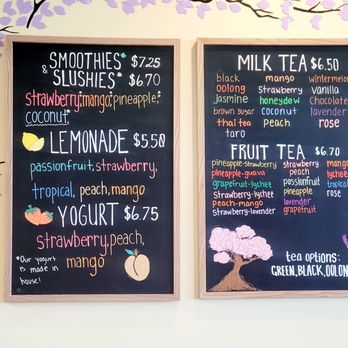 SMOOTHIES* $7.25
& SLUSHIES* $6.70
strawberry,*mango,*pineapple,*
coconut*
LEMONADE $5.50
passionfruit, strawberry,
tropical, peach, mango
YOGURT $6.75
strawberry, peach,
mango
*Our yogurt
is made in
house!
MILK TEA $6.50
black mango wintermelon
oolong strawberry vanilla
jasmine honeydew Chocolate
brown sugar coconut lavender
thai tea peach rose
taro
FRUIT TEA $6.70
pineapple-strawberry strawberry mango
pineapple-guava peach lychee
grapefruit-lychee passionfruit tropical
strawberry-lychee pineapple rose
peach-mango lavender
strawberry-lavender grapefruit
tea options:
GREEN, BLACK, OOLON